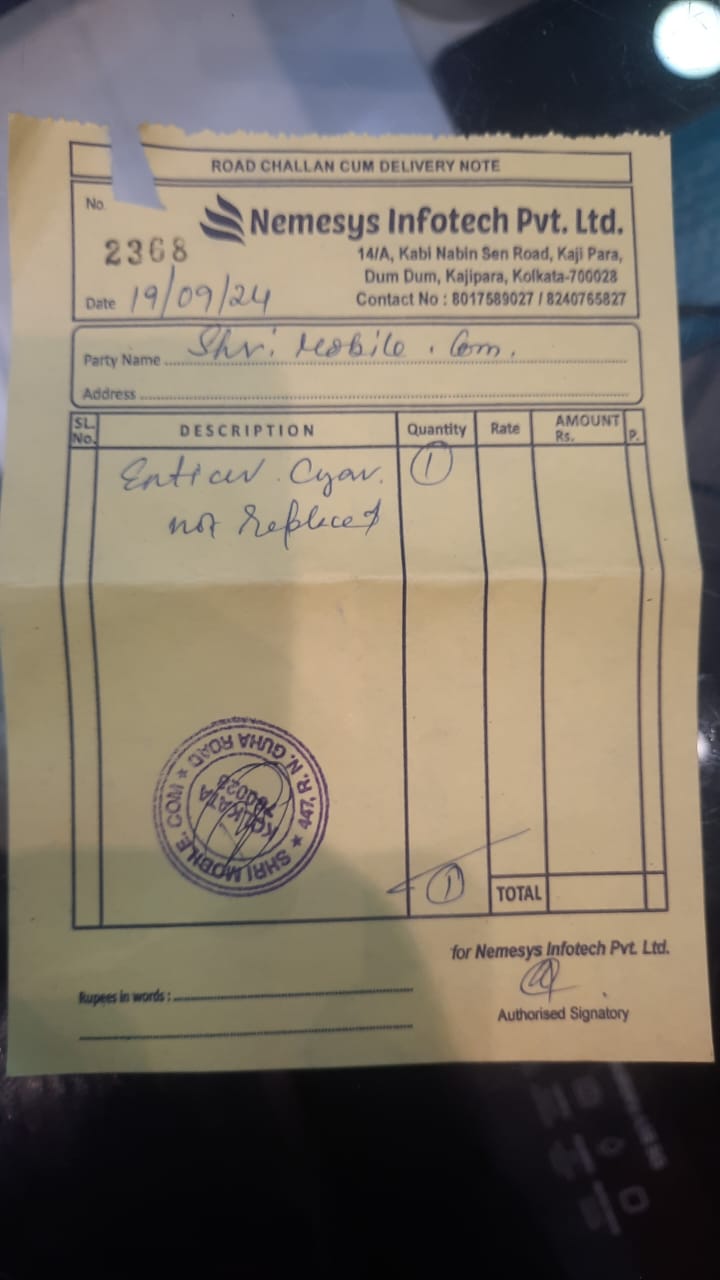 ROAD CHALLAN CUM DELIVERY NOTE
No.
2368
Nemesys Infotech Pvt. Ltd.
14/A, Kabi Nabin Sen Road, Kaji Para,
Dum Dum, Kajipara, Kolkata-700028
Contact No : 8017589027 / 8240765827
Date 19/09/24
Party Name Shri Mobile . Com.
Address
SL. No. DESCRIPTION Quantity Rate AMOUNT Rs. P.
1
not
SHRI MOBILE. COM ★ 447, R. N. GUHA ROAD ★
KOLKATA
700028
1 TOTAL
for Nemesys Infotech Pvt. Ltd.
Rupees in words :
Authorised Signatory